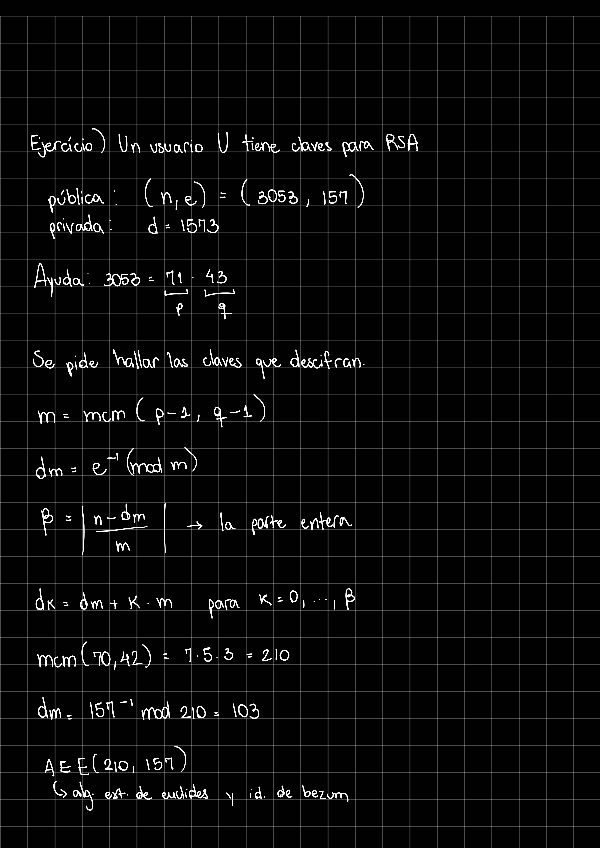 Ejercicio) Un usuario U tiene claves para RSA
pública: (n,e) = (3053, 157)
privada: d = 1573
Ayuda: 3053 = 71 · 43
p q
Se pide hallar las claves que descifran.
m = mcm (p-1, q-1)
dm = e⁻¹ (mod m)
β = | n - dm / m | → la parte entera
dk = dm + k · m para k = 0, ..., β
mcm (70,42) = 7·5·3 = 210
dm = 157⁻¹ mod 210 = 103
AEE(210, 157)
↳ alg. ext. de euclides y id. de bezum